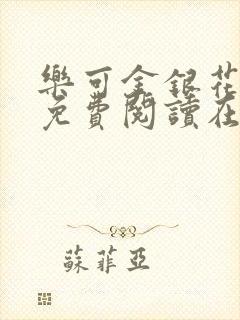 樂可金銀花
免費閱讀在
蘇菲亞